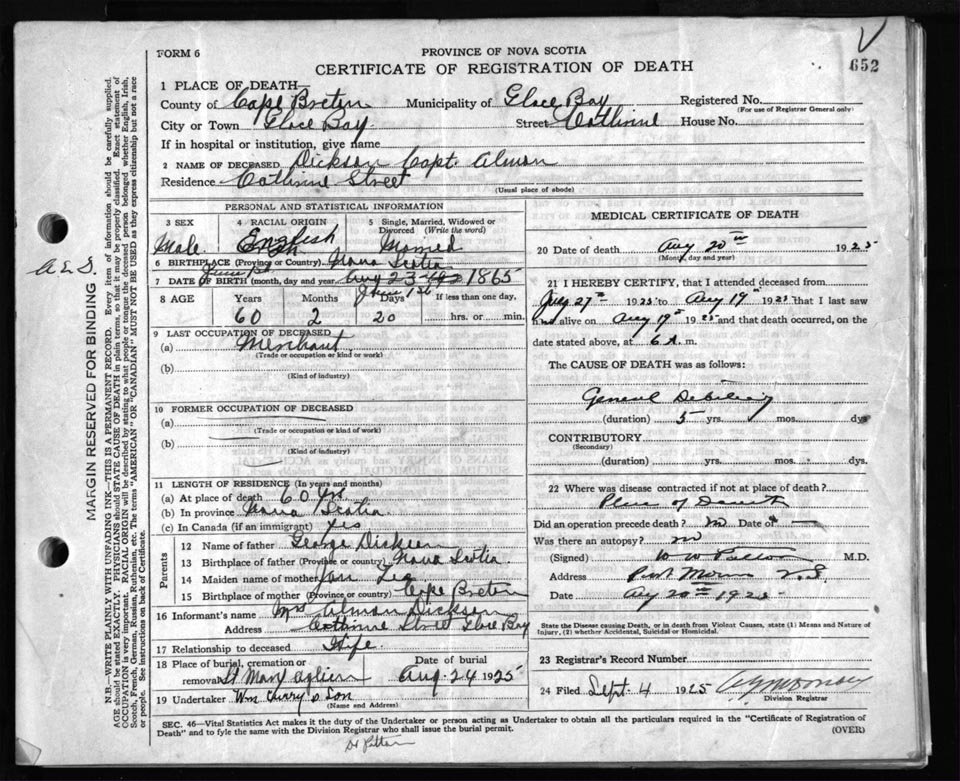 652
FORM 6
PROVINCE OF NOVA SCOTIA
CERTIFICATE OF REGISTRATION OF DEATH
1 PLACE OF DEATH
County of Cape Breton Municipality of Glace Bay Registered No.
(For use of Registrar General only)
City or Town Glace Bay Street Cathrine House No.
If in hospital or institution, give name
2 NAME OF DECEASED Dickson Capt. Alman
Residence Cathrine Street
(Usual place of abode)
PERSONAL AND STATISTICAL INFORMATION
3 SEX
Male
4 RACIAL ORIGIN
English
5 Single, Married, Widowed or Divorced (Write the word)
Married
6 BIRTHPLACE (Province or Country) Nova Scotia
7 DATE OF BIRTH (month, day and year) Aug 23 1865
June 1st
8 AGE Years Months Days If less than one day,
60 2 20 hrs. or min.
9 LAST OCCUPATION OF DECEASED
(a) Merchant
(Trade or occupation or kind or work)
(b)
(Kind of industry)
10 FORMER OCCUPATION OF DECEASED
(a)
(Trade or occupation or kind or work)
(b)
(Kind of industry)
11 LENGTH OF RESIDENCE (In years and months)
(a) At place of death 60 yrs
(b) In province Nova Scotia
(c) In Canada (if an immigrant) yes
Parents
12 Name of father George Dickson
13 Birthplace of father (Province or country) Nova Scotia
14 Maiden name of mother
15 Birthplace of mother (Province or country) Cape Breton
16 Informant's name Mrs Alman Dickson
Address Cathrine Street Glace Bay
17 Relationship to deceased Wife
18 Place of burial, cremation or removal St Mary Date of burial Aug. 24 1925
19 Undertaker Wm Curry & Son
(Name and Address)
MEDICAL CERTIFICATE OF DEATH
20 Date of death Aug 20th 1925
(Month, day and year)
21 I HEREBY CERTIFY, that I attended deceased from
July 27th 1925 to Aug 19th 1925 that I last saw
him alive on Aug 19th 1925 and that death occurred, on the
date stated above, at 6 A. m.
The CAUSE OF DEATH was as follows:
General Debility
(duration) 5 yrs. mos. dys
CONTRIBUTORY
(Secondary)
(duration) yrs. mos. dys.
22 Where was disease contracted if not at place of death?
Place of Death
Did an operation precede death? no Date of
Was there an autopsy? no
(Signed) M.D.
Address Port Morien N.S.
Date Aug 20th 1925
State the Disease causing Death, or in death from Violent Causes, state (1) Means and Nature of Injury, (2) whether Accidental, Suicidal or Homicidal.
23 Registrar's Record Number
24 Filed Sept. 4 1925
Division Registrar
SEC. 46—Vital Statistics Act makes it the duty of the Undertaker or person acting as Undertaker to obtain all the particulars required in the "Certificate of Registration of
Death" and to fyle the same with the Division Registrar who shall issue the burial permit.
(OVER)
MARGIN RESERVED FOR BINDING
N.B.—WRITE PLAINLY WITH UNFADING INK—THIS IS A PERMANENT RECORD. Every item of information should be carefully supplied.
AGE should be stated EXACTLY. PHYSICIANS should STATE CAUSE OF DEATH in plain terms, so that it may be properly classified. Exact statement of
OCCUPATION is very important. RACIAL ORIGIN will be described by stating to what people or tongue the deceased person belonged whether English, Irish,
Scotch, French, German, Russian, Ruthenian, etc. The terms "AMERICAN" OR "CANADIAN" MUST NOT BE USED as they express citizenship but not a race
or people. See instructions on back of Certificate.